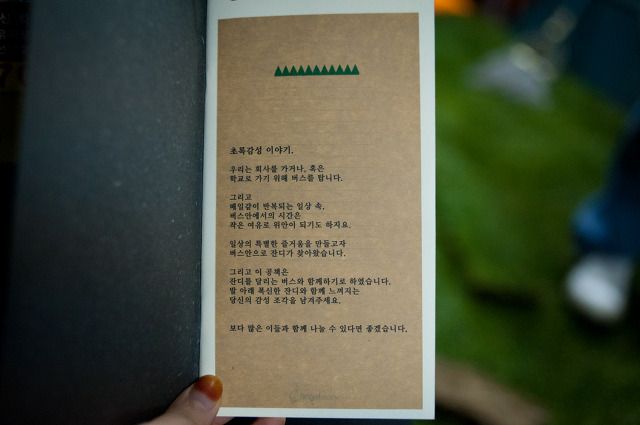 초록감성 이야기.
우리는 회사를 가거나, 혹은
학교로 가기 위해 버스를 탑니다.
그리고
매일같이 반복되는 일상 속,
버스안에서의 시간은
작은 여유로 위안이 되기도 하지요.
일상의 특별한 즐거움을 만들고자
버스안으로 잔디가 찾아왔습니다.
그리고 이 공책은
잔디를 달리는 버스와 함께하기로 하였습니다.
발 아래 푹신한 잔디와 함께 느껴지는
당신의 감성 조각을 남겨주세요.
보다 많은 이들과 함께 나눌 수 있다면 좋겠습니다.